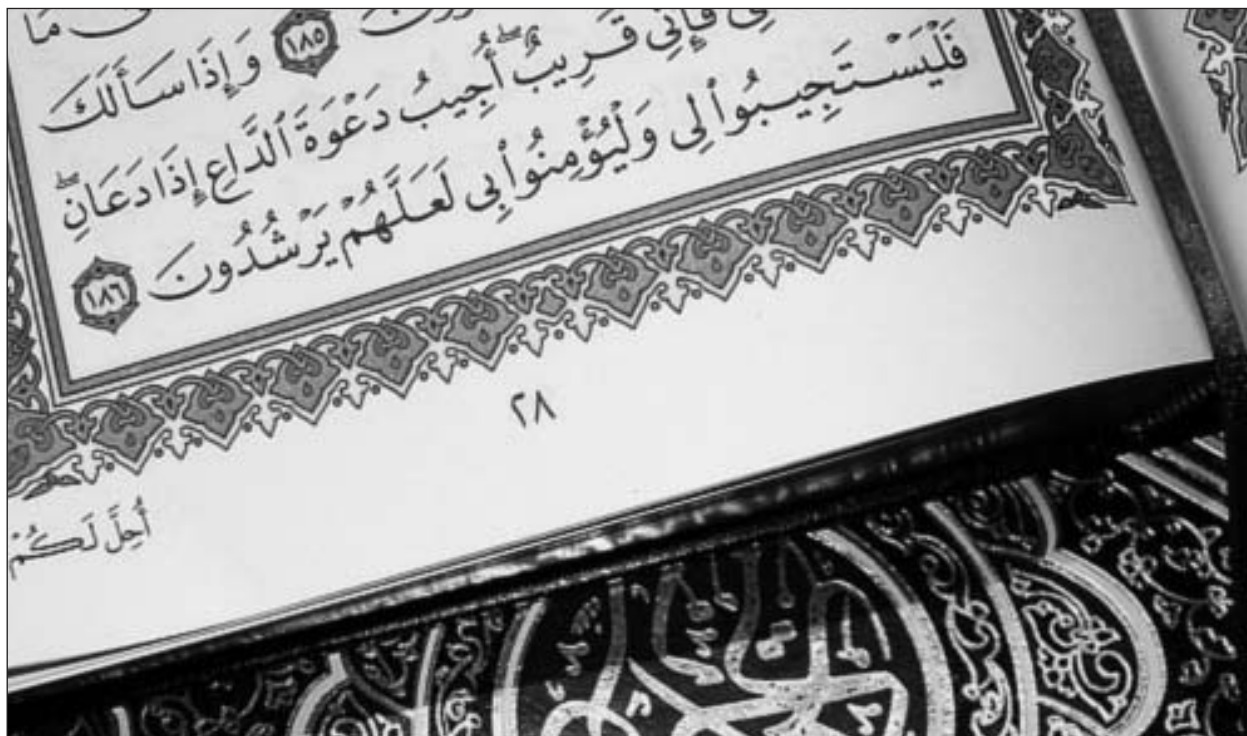 مَا
١٨٥ وَإِذَا سَأَلَكَ
فَإِنِّى قَرِيبٌ ۖ أُجِيبُ دَعْوَةَ ٱلدَّاعِ إِذَا دَعَانِ ۖ
فَلْيَسْتَجِيبُوا۟ لِى وَلْيُؤْمِنُوا۟ بِى لَعَلَّهُمْ يَرْشُدُونَ ١٨٦
٢٨
أُحِلَّ لَكُمْ